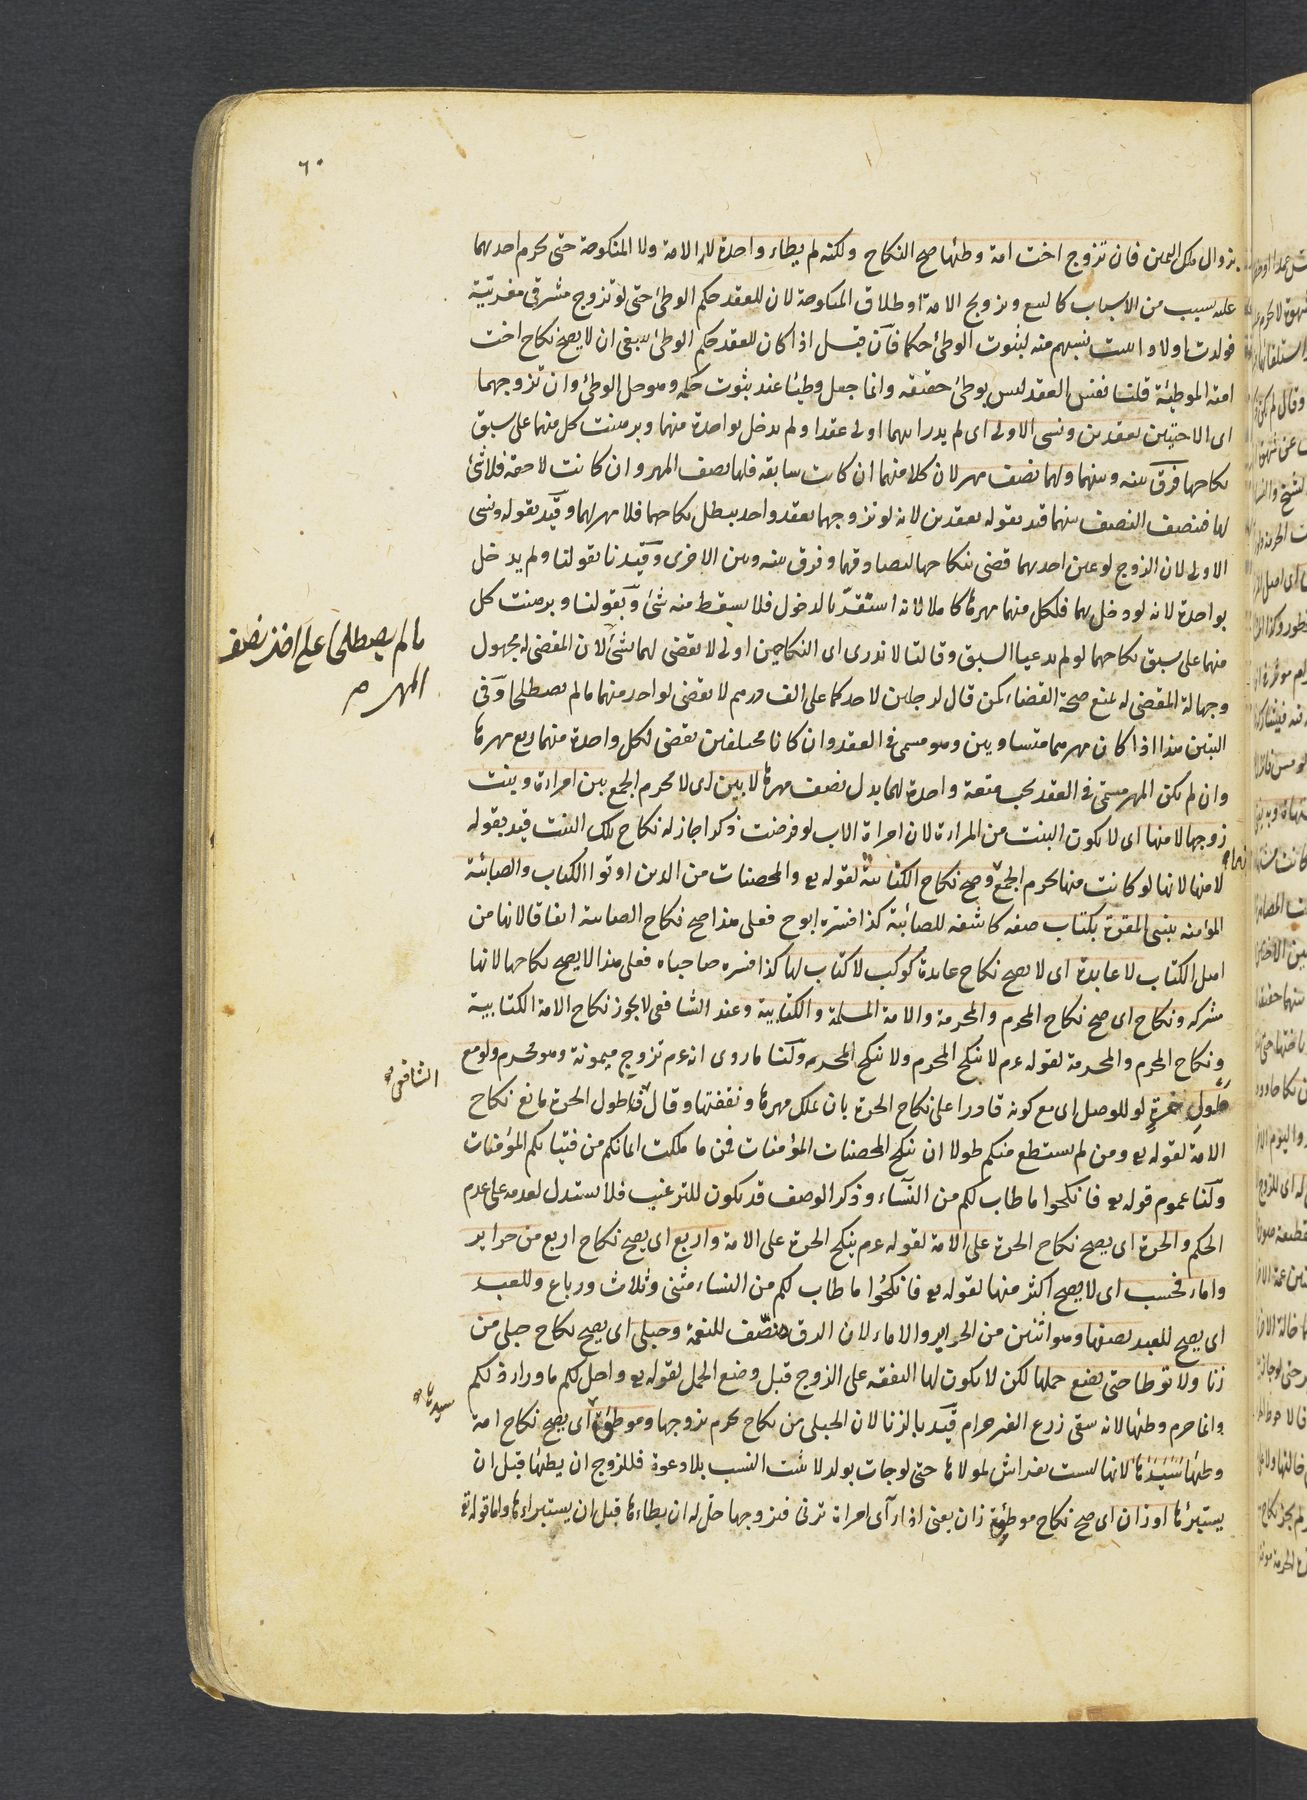 ٦٠
بزوال ملك اليمين فان تزوج اخت امة وطئها صح النكاح ولكنه لم يطاء واحدة لا الامة ولا المنكوحة حتى يحرم احديهما
عليه بسبب من الاسباب كالبيع وتزويج الامة او طلاق المنكوحة لان للعقد حكم الوطئ حتى لو تزوج مشرقى مغربية
فولدت اولادا ثبت نسبهم منه لثبوت الوطئ حكما فان قيل اذا كان للعقد حكم الوطئ ينبغى ان لا يصح نكاح اخت
امته الموطئة قلنا نفس العقد ليس بوطئ حقيقة وانما جعل وطئا عند ثبوت حكمه وهو حل الوطئ وان تزوجهما
اى الاختين بعقدين ونسى الاولى اى لم يدر ايهما اولى عقدا ولم يدخل بواحدة منهما وبرهنت كل منهما على سبق
نكاحها فرق بينه وبينهما ولهما نصف مهر لان كلا منهما ان كانت سابقة فلها نصف المهر وان كانت لاحقة فلا شئ
لها فنصف النصف بينهما قيد بقوله بعقدين لانه لو تزوجهما بعقد واحد يبطل نكاحهما فلا مهر لهما وقيد بقوله ونسى
الاولى لان الزوج لو عين احديهما قضى بنكاحها لتصادقهما وفرق بينه وبين الاخرى وقيدنا بقولنا ولم يدخل
بواحدة لانه لو دخل بهما فلكل منهما مهرها كاملا لانه استقر بالدخول فلا يسقط منه شئ وبقولنا وبرهنت كل
منهما على سبق نكاحهما لو لم يدعيا السبق وقالتا لا ندرى اى النكاحين اولى لا يقضى لهما بشئ لان المقضى له مجهول
ما لم يصطلحا على اخذ نصف
المهر صح
وجهالة المقضى له تمنع صحة القضاء كمن قال لرجلين لاحدكما على الف درهم لا يقضى لواحد منهما ما لم يصطلحا وفى
التبيين هذا اذا كان مهرهما متساويين وهو مسمى فى العقد وان كانا مختلفين يقضى لكل واحدة منهما ربع مهرها
وان لم يكن المهر مسمى فى العقد يجب متعة واحدة لهما بدل نصف مهرها لا بين اى لا يحرم الجمع بين امراءة وبنت
زوجها لا منها اى لا يكون البنت من المراءة لان امراة الاب لو فرضت ذكرا جاز له نكاح تلك البنت قيد بقوله
لا منها لانها لو كانت منها يحرم الجمع وصح نكاح الكتابية لقوله تع والمحصنات من الذين اوتوا الكتاب والصابئة
المؤمنة بنبى المقرة بكتاب صفة كاشفة للصابئة كذا فسره ابو ح فعلى هذا صح نكاح الصابئة اتفاقا لانها من
اهل الكتاب لا عابدة اى لا يصح نكاح عابدة كوكب لا كتاب لها كذا فسره صاحباه فعلى هذا لا يصح نكاحها لانها
مشركة ونكاح اى صح نكاح المحرم والمحرمة والامة المسلمة والكتابية وعند الشافعى لا يجوز نكاح الامة الكتابية
ونكاح المحرم والمحرمة لقوله عم لا ينكح المحرم ولا ينكح المحرمة ولنا ما روى انه عم تزوج ميمونة وهو محرم ولو مع
طول حرة لو للوصل اى مع كونه قادرا على نكاح الحرة بان يملك مهرها ونفقتها وقال طول الحرة مانع نكاح
الشافعى صح
الامة لقوله تع ومن لم يستطع منكم طولا ان ينكح المحصنات المؤمنات فمن ما ملكت ايمانكم من فتياتكم المؤمنات
ولنا عموم قوله تع فانكحوا ما طاب لكم من النساء وذكر الوصف قد يكون للترغيب فلا يستدل لعدمه على عدم
الحكم والحرة اى يصح نكاح الحرة على الامة لقوله عم ينكح الحرة على الامة واربع اى يصح نكاح اربع من حراير
واماء فحسب اى لا يصح اكثر منها لقوله تع فانكحوا ما طاب لكم من النساء مثنى وثلاث ورباع وللعبد
اى يصح للعبد نصفها وهو اثنين من الحراير والاماء لان الرق منصف للنعمة وحبلى اى يصح نكاح حبلى من
زنا ولا توطا حتى يضع حملها لكن لا يكون لها النفقة على الزوج قبل وضع الحمل لقوله تع واحل لكم ما وراء ذلكم
وانما حرم وطئها لانه سقى زرع الغير حرام قيد بالزنا لان الحبلى من نكاح يحرم تزوجها وموطئة اى يصح نكاح امة
سيدها صح
وطئها سيدها لانها ليست بفراش لمولاها حتى لو جات بولد لا يثبت النسب بلا دعوة فللزوج ان يطئها قبل ان
يستبرئها او زان اى صح نكاح موطئة زان يعنى اذا رآى امراة تزنى فتزوجها حل له ان يطاءها قبل ان يستبراءها واما قوله تع